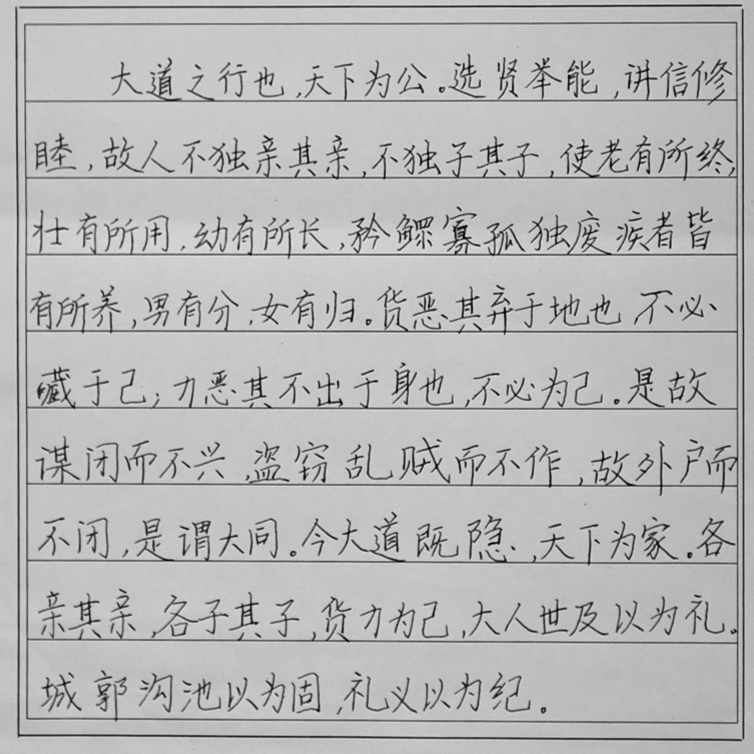 大道之行也,天下为公。选贤举能,讲信修
睦,故人不独亲其亲,不独子其子,使老有所终,
壮有所用,幼有所长,矜鳏寡孤独废疾者皆
有所养,男有分,女有归。货恶其弃于地也,不必
藏于己;力恶其不出于身也,不必为己。是故
谋闭而不兴,盗窃乱贼而不作,故外户而
不闭,是谓大同。今大道既隐,天下为家。各
亲其亲,各子其子,货力为己,大人世及以为礼。
城郭沟池以为固,礼义以为纪。